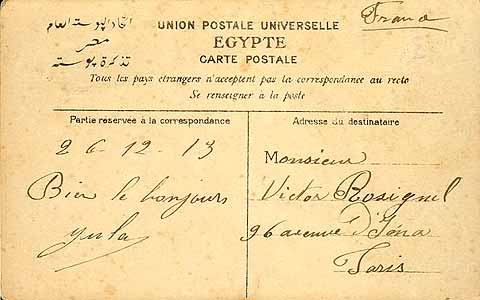 France
اتحاد البوسته العام
مصر
تذكرة بوسته
UNION POSTALE UNIVERSELLE
EGYPTE
CARTE POSTALE
Tous les pays etrangers n'acceptent pas la correspondance au recto
Se renseigner à la poste
Partie reservée à la correspondance
26-12-13
Bien le bonjours
Adresse du destinataire
Monsieur
Victor Rosignel
96 avenue D'Iéna
Paris